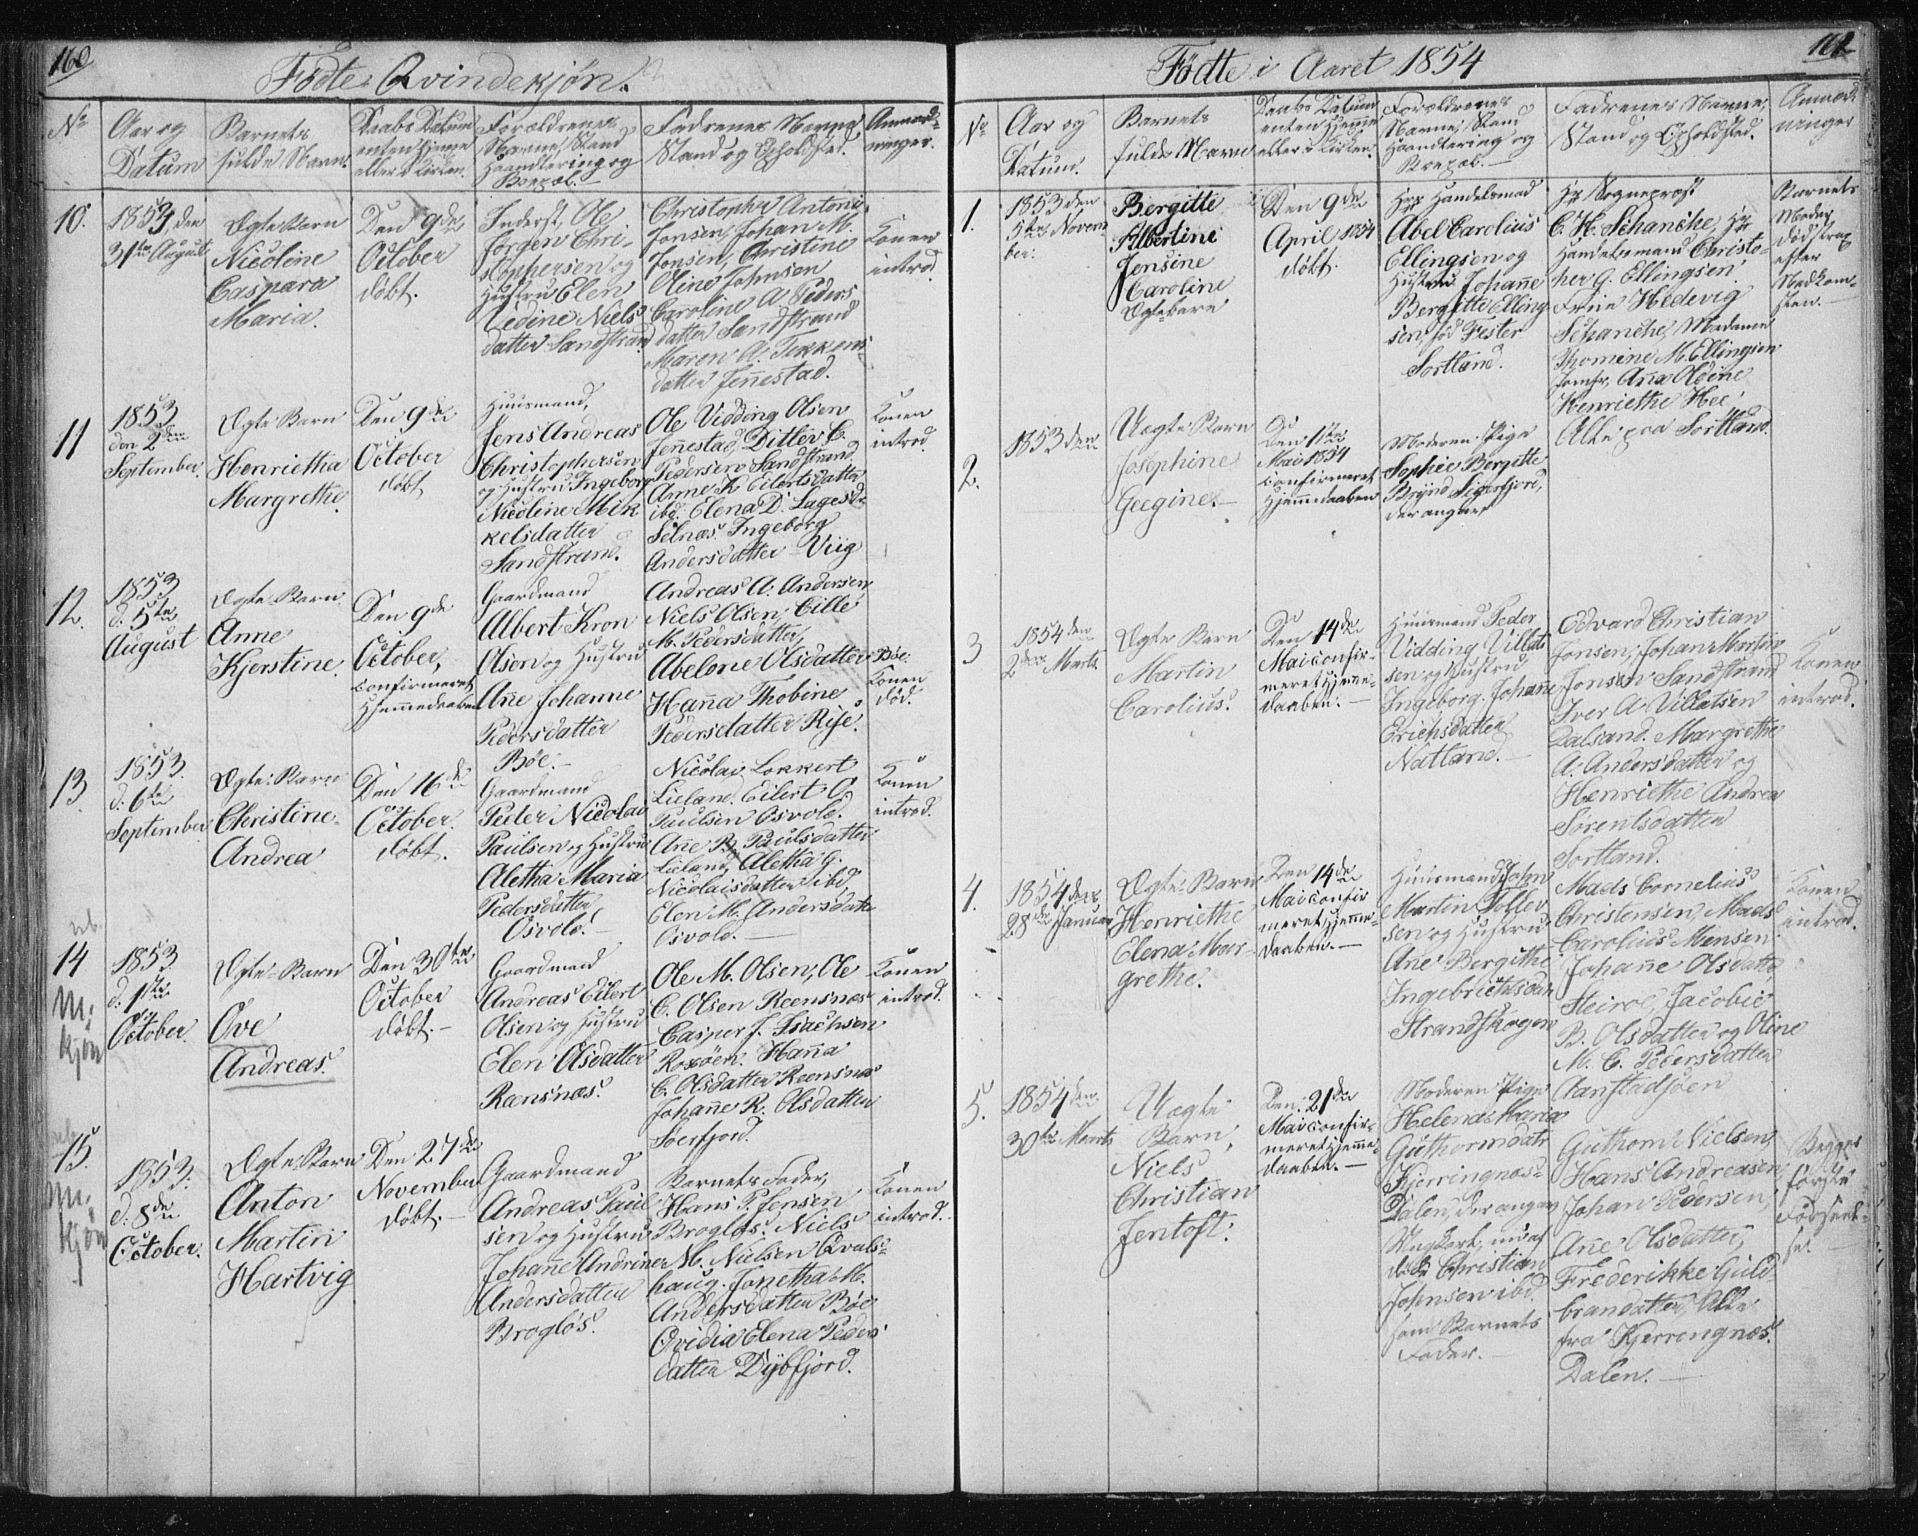 160
Fødte Qvindekjøn.
No
Aar og
Datum
Barnets
fulde Navn.
Daabs Datum
enten hjemme
eller i Kirken.
Forældrenes
Navne, Stand
Haandtering og
Bopæl.
Faddrenes Navne,
Stand og Opholdsted.
Anmærk-
ninger.
10.
1853 den
31te August
Ægte Barn
Nicoline
Caspara
Maria.
Den 9de
October
døbt.
Inderst Ole
Jørgen Chri-
stophersen og
Hustru Elen
Nielsdatter Sandstrand
Christopher Antoni
Jonsen, Johan M.
Jonsen, Christine
Oline Johnsen
Caroline A. Peders
datter Sandstrand
Maren A.
datter Jennestad.
Konen
introd.
11
1853
den 2den
September.
Ægte Barn
Henrietha
Margrethe.
Den 9de
October
døbt
Huusmand,
Jens Andreas
Christophersen
og Hustru Ingeborg
Nicoline Mik
kelsdatter
Sandstrand.
Ole Vidding Olsen
Jennestad, Ditlev C.
Pedersen Sandstrand
Anne K. Eilertsdatter
ibd. Elena D.
Selnæs Ingeborg
Andersdatter Viig
Konen
introd.
12.
1853
d. 5te
August
Ægte Barn
Anne
Kjerstine.
Den 9de
October,
confirmeret
Hjemmedaaben
Gaardmand
Albert Kron
Olsen og Hustru
Ane Johanne
Pedersdatter
Bøe.
Andreas A. Andersen
Niels Olsen, Cille
M. Pedersdatter,
Abelone Olsdatter Bøe.
Hanna Thobine
Pedersdatter Rise.
Konen
død.
13
1853.
d. 6te
September
Ægte Barn
Christine
Andrea
Den 16de
October.
døbt.
Gaardmand
Peder Nicolai
Paulsen og Hustru
Aletha Maria
Pedersdatter
Osvold.
Nicolai Lokkert
Lieland. Eilert O.
Paulsen Osvold.
Ane B. Paulsdatter
Lieland, Aletha G.
Nicolaisdatter ibd,
Elen M. Andersdatter
Osvold.
Konen
introd.
14
M:
kjøn
1853
d. 1te
October.
Ægte Barn
Ove
Andreas.
Den 30te
October
døbt.
Gaardmand
Andreas Eilert
Olsen og Hustru
Elen Olsdatter
Rænsnæs.
Ole M. Olsen, Ole
C. Olsen Reensnæs
Casper J. Isachsen
Roksøen. Hanna
C. Olsdatter Reensnæs
Johanne R. Olsdatter
Soerfjord.
Konen
introd.
15.
M:
kjøn
1853.
d. 8de
October.
Ægte Barn
Anton
Martin
Hartvig
Den 27de
November
døbt.
Gaardmand
Andreas Paul
sen og Hustru
Johanne Andrine
Andersdatter
Brogløs.
Barnets Fader,
Hans P. Jensen
Brogløs. Niels
M. Nielsen Qvals-
haug. Jonetha M.
Andersdatter Bøe
Ovidia Elena Peders
datter Dybfjord.
Konen
introd.
Fødte i Aaret 1854
No
Aar og
Datum.
Barnets
fulde Navn
Daabs Datum
enten hjemme
eller i Kirken.
Forældrenes
Navne, Stand
Haandtering og
Bopæl.
Faddrenes Navne,
Stand og Opholdsted.
Anmærk-
ninger
1.
1853 den
5te Novem
ber.
Bergitte
Albertine
Jensine
Caroline
Ægtebarn
Den 9de
April 1854
døbt.
Hr Handelsmand
Abel Carolius
Ellingsen og
Hustru Johanne
Bergitte Elling
sen, fød Fester
Sortland.
Hr Sognepræst
C. H. Schanche, Hr
Handelsmand Christo-
her G. Ellingsen.
Fruin Hedevig
Schanche, Madame
Thomine M. Ellingsen
Jomfr. Ana Oldine
Henriethe Hee,
Alle paa Sortland.
Barnets
Moder
Død strax
efter
Nedkom-
sten.
2.
1853 den
Uægte Barn
Josephine
Geegine.
Den 11te
Mai 1854
confirmeret
Hjemmedaaben
Moderen Pige
Sophie Bergitte
Brynd Sigerfjord,
der angav
3
1854 den
2den Marts
Ægte Barn
Martin
Carolius.
Den 14de
Mai confir-
meret Hjemme-
daaben.
Huusmand Peder
Vidding Villats
sen og Hustru
Ingeborg Johanne
Erichsdatter
Natland.
Edvard Christian
Jonsen, Johan Martin
Jonsen Sandstrand
Iver A. Villatsen
Dalsand. Margrethe
A. Andersdatter og
Henriethe Andrea
Sørentsdatter
Sortland.
Konen
introd.
4.
1854 den
28de Januar
Ægte Barn
Henriethe
Elena Mar-
grethe.
Den 14de
Mai confir
meret Hjemme-
daaben.
Huusmand John
Martin Tollev
sen og Hustru
Ane Bergithe
Ingebrichtsdatr
Strandskogen
Mads Cornelius
Christensen, Mads
Carolius Mensen
Johanne Olsdatter
Steiroe, Jacobie
B. Olsdatter og Oline
M. C. Pedersdatter
Aanstadsjøen
Konen
introd.
5.
1854 den
30te Marts
Uægte
Barn,
Niels
Christian
Jentoft.
Den 21de
Mai confir-
meret Hjemme-
daaben.
Moderen Pige
Helena Maria
Guthormdatr
Kjerringnæs-
Dalen, der angav
Ungkarl,
Christian
Johnsen ibd.
som Barnets
Fader.
Guthorm Nielsen,
Hans Andreasen,
Johan Pedersen,
Ane Olsdatter,
Frederikke Guld-
brandatter, Alle
fra Kjerringnæs.
Dalen.
Begges
første
Forseel-
se